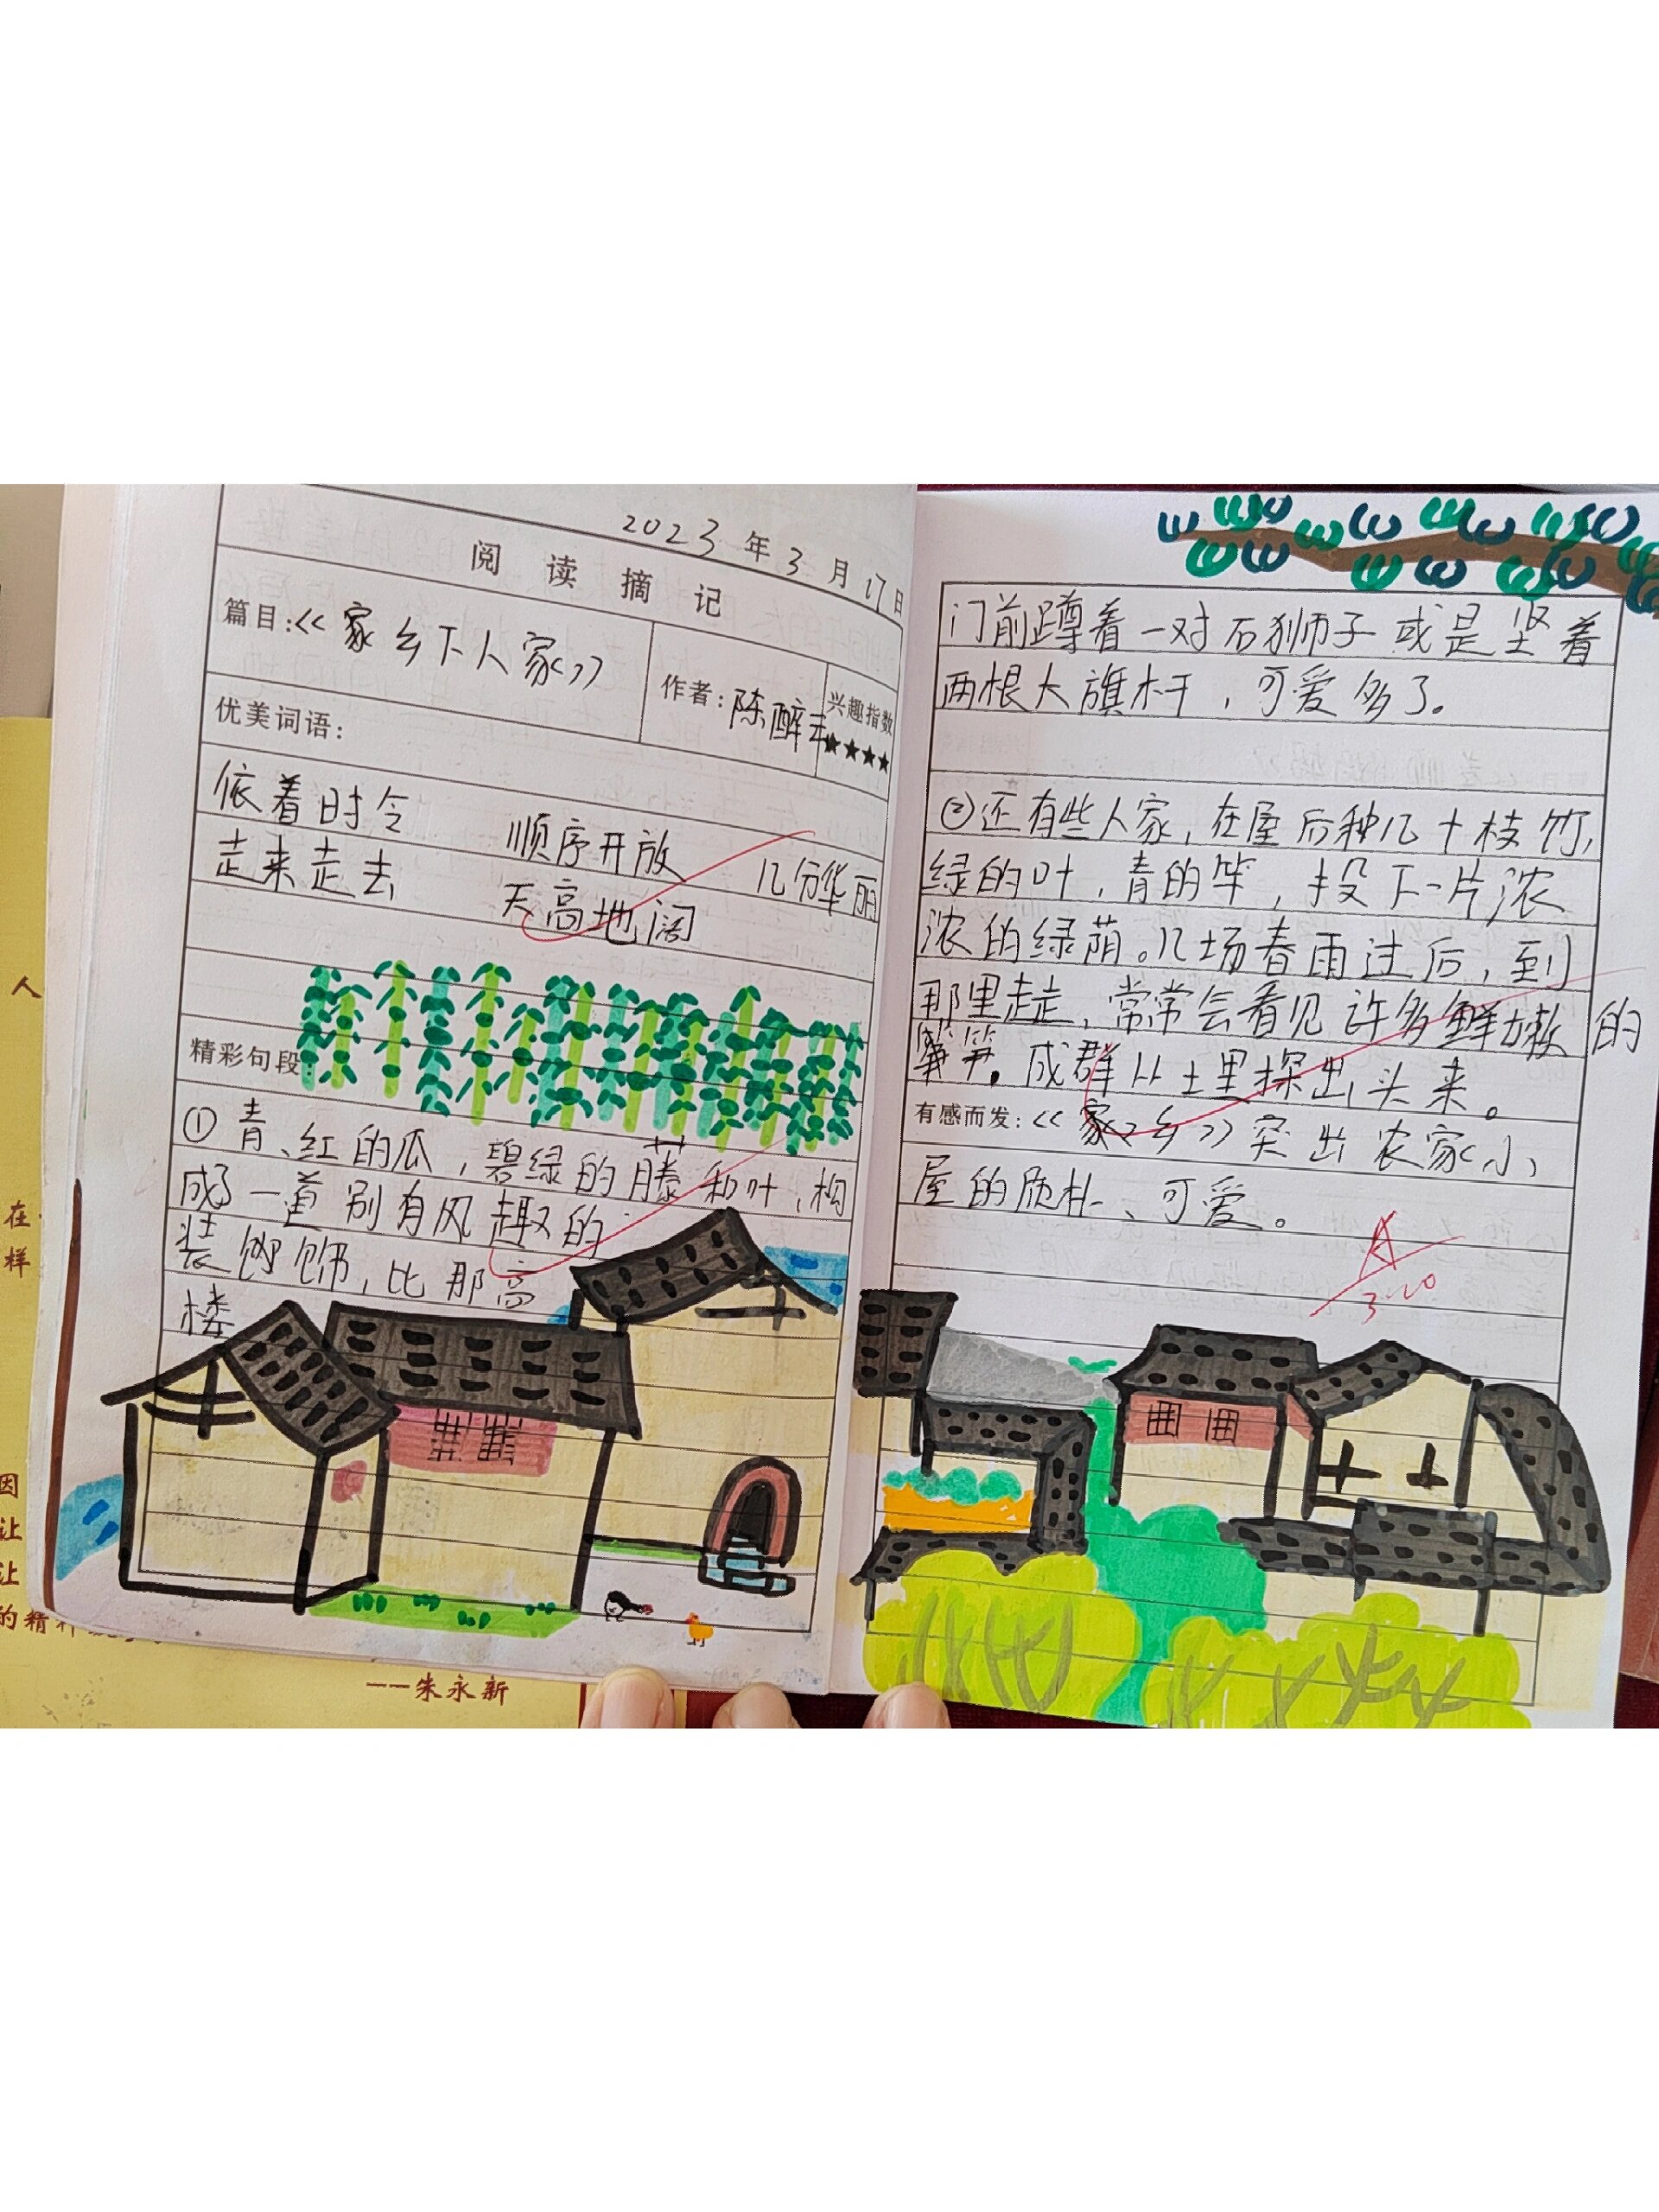 2023年3月17日
阅读摘记
篇目：《家乡下人家》
作者：陈醉云
兴趣指数
★★★★
优美词语：
依着时令 顺序开放 几分华丽
走来走去 天高地阔
精彩句段：
①青、红的瓜，碧绿的藤和叶，构
成了一道别有风趣的
装饰，比那高
楼
门前蹲着一对石狮子或是竖着
两根大旗杆，可爱多了。
②还有些人家，在屋后种几十枝竹，
绿的叶，青的竿，投下一片浓
浓的绿荫。几场春雨过后，到
那里走走，常常会看见许多鲜嫩的
笋，成群从土里探出头来。
有感而发：《家乡》突出农家小
屋的质朴、可爱。
A
3.20
人
在
样
因
让
让
的精神
——朱永新